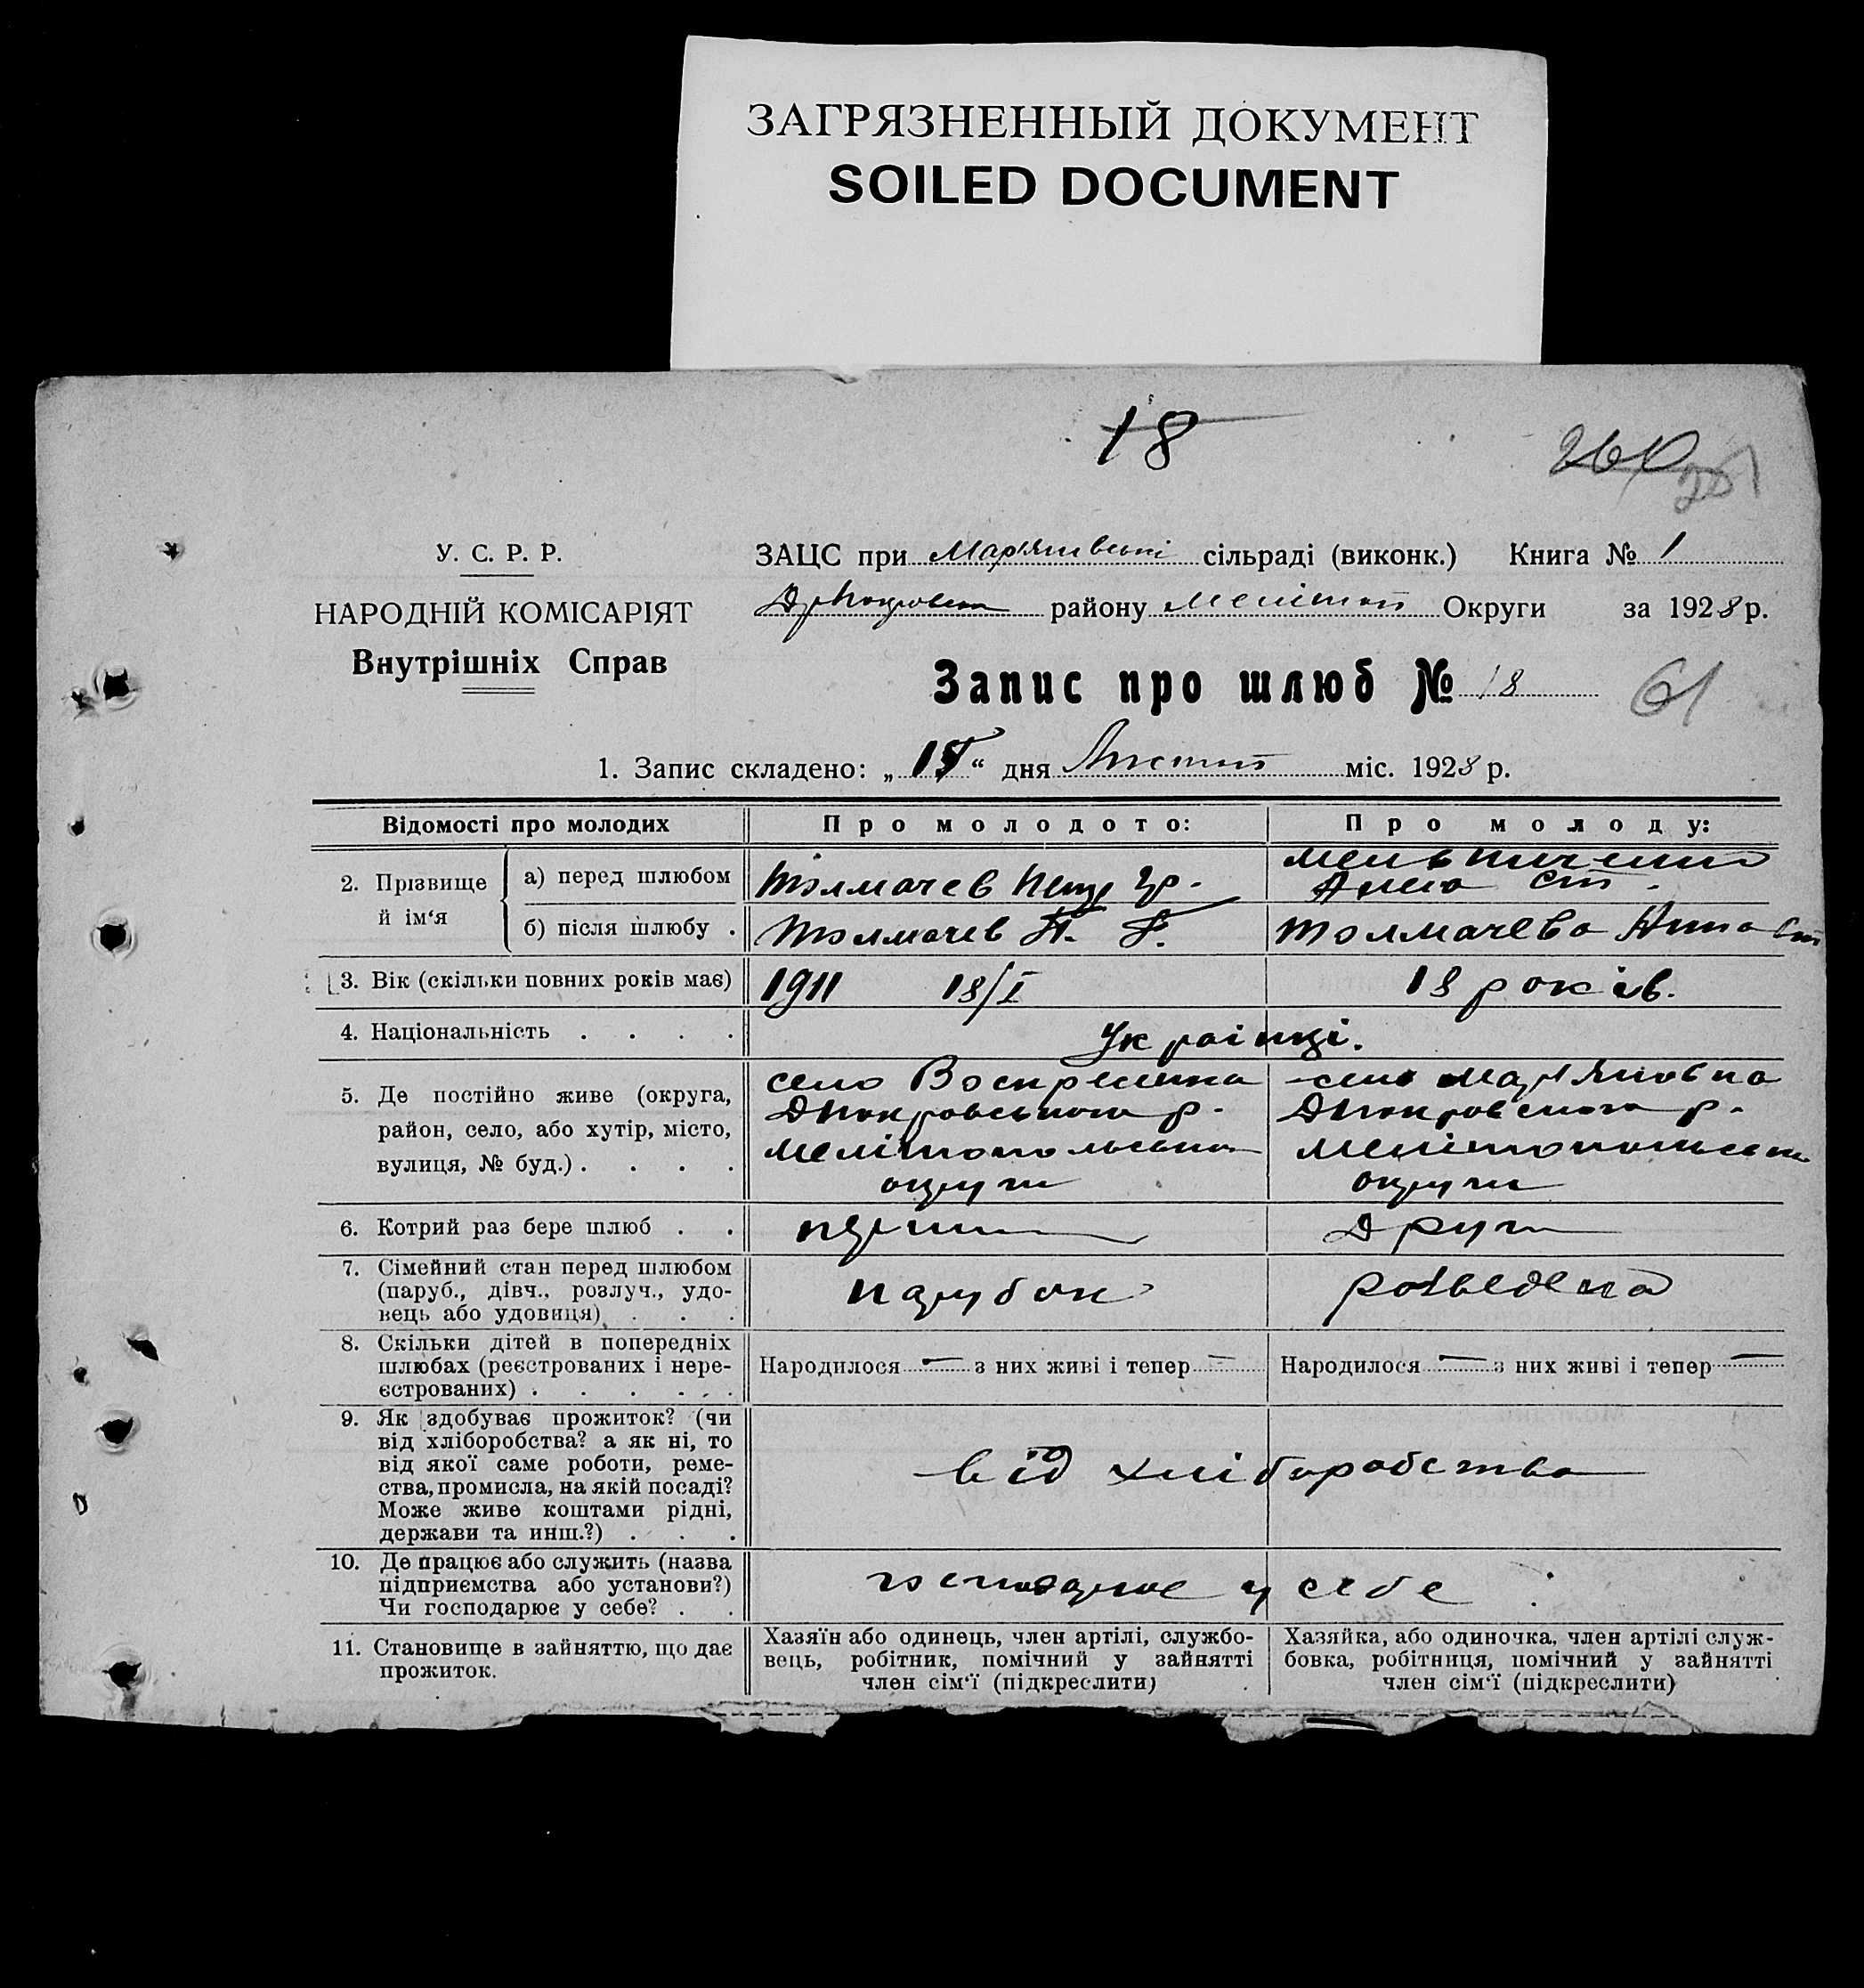 ЗАГРЯЗНЕННЫЙ ДОКУМЕНТ
SOILED DOCUMENT
18
260
У. С. Р. Р.
НАРОДНІЙ КОМІСАРІЯТ
Внутрішніх Справ
ЗАЦС при сільраді (виконк.) Книга № 1
району Меліто Округи за 1928 р.
Запис про шлюб № 18
61
1. Запис складено: „ “ дня міс. 1928 р.
Відомості про молодих Про молодого: Про молоду:
2. Прізвище й ім‘я
а) перед шлюбом Толмачев Гр. Анна Ст.
б) після шлюбу . Толмачев П. Г. Толмачева Анна Ст
3. Вік (скільки повних років має) 1911 18/I 18 років.
4. Національність . . . . Українці.
5. Де постійно живе (округа,
район, село, або хутір, місто,
вулиця, № буд.) . . . .
село Воскресенка
Дпокровського р.
Мелітопольська
округи
село
Дпокровського р.
округи
6. Котрий раз бере шлюб . . перши други
7. Сімейний стан перед шлюбом
(паруб., дівч., розлуч., удо-
вець або удовиця) . . .
парубок розведена
8. Скільки дітей в попередніх
шлюбах (реєстрованих і нере-
єстрованих) . . . . . .
Народилося — з них живі і тепер — Народилося — з них живі і тепер —
9. Як здобуває прожиток? (чи
від хліборобства? а як ні, то
від якої саме роботи, реме-
ства, промисла, на якій посаді?
Може живе коштами рідні,
держави та инш.?) . . .
від хліборобства
10. Де працює або служить (назва
підприємства або установи?)
Чи господарює у себе? . .
господарює у себе
11. Становище в зайняттю, що дає
прожиток.
Хазяїн або одинець, член артілі, службо-
вець, робітник, помічний у зайнятті
член сім‘ї (підкреслити)
Хазяйка, або одиночка, член артілі служ-
бовка, робітниця, помічний у зайнятті
член сім‘ї (підкреслити)